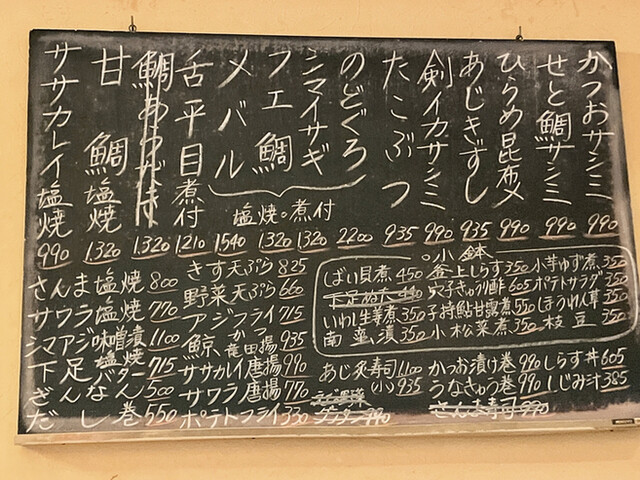 かつおサシミ 990
せと鯛サシミ 990
ひらめ昆布〆 990
あじきずし 935
剣イカサシミ 990
たこぶつ 935
のどぐろ 2200
シマイサギ 1320
フエ鯛 1320
メバル 1540
塩焼○煮付
舌平目煮付 1210
鯛あらだき 1320
甘鯛塩焼 1320
ササカレイ塩焼 990
さんま塩焼 800
サワラ塩焼 770
シマアジ味噌漬 1100
下足塩焼バター 715
ざんなん 500
だし巻 550
きす天ぷら 825
野菜天ぷら 660
アジフライ 715
鯨かつ 竜田揚 935
ササカレイ唐揚 990
サワラ唐揚 770
ポテトフライ 330
○小鉢
ばい貝煮 450
いわし生姜煮 350
南蛮漬 350
釜上しらす 350
穴子きゅうり酢 605
子持鮎甘露煮 550
小松菜煮 350
小芋ゆず煮 350
ポテトサラダ 350
ほうれん草 350
枝豆 350
あじ炙寿司 1100
(小) 935
かつお漬け巻 990
うなきゅう巻 990
さんま寿司 990
しらす丼 605
しじみ汁 385